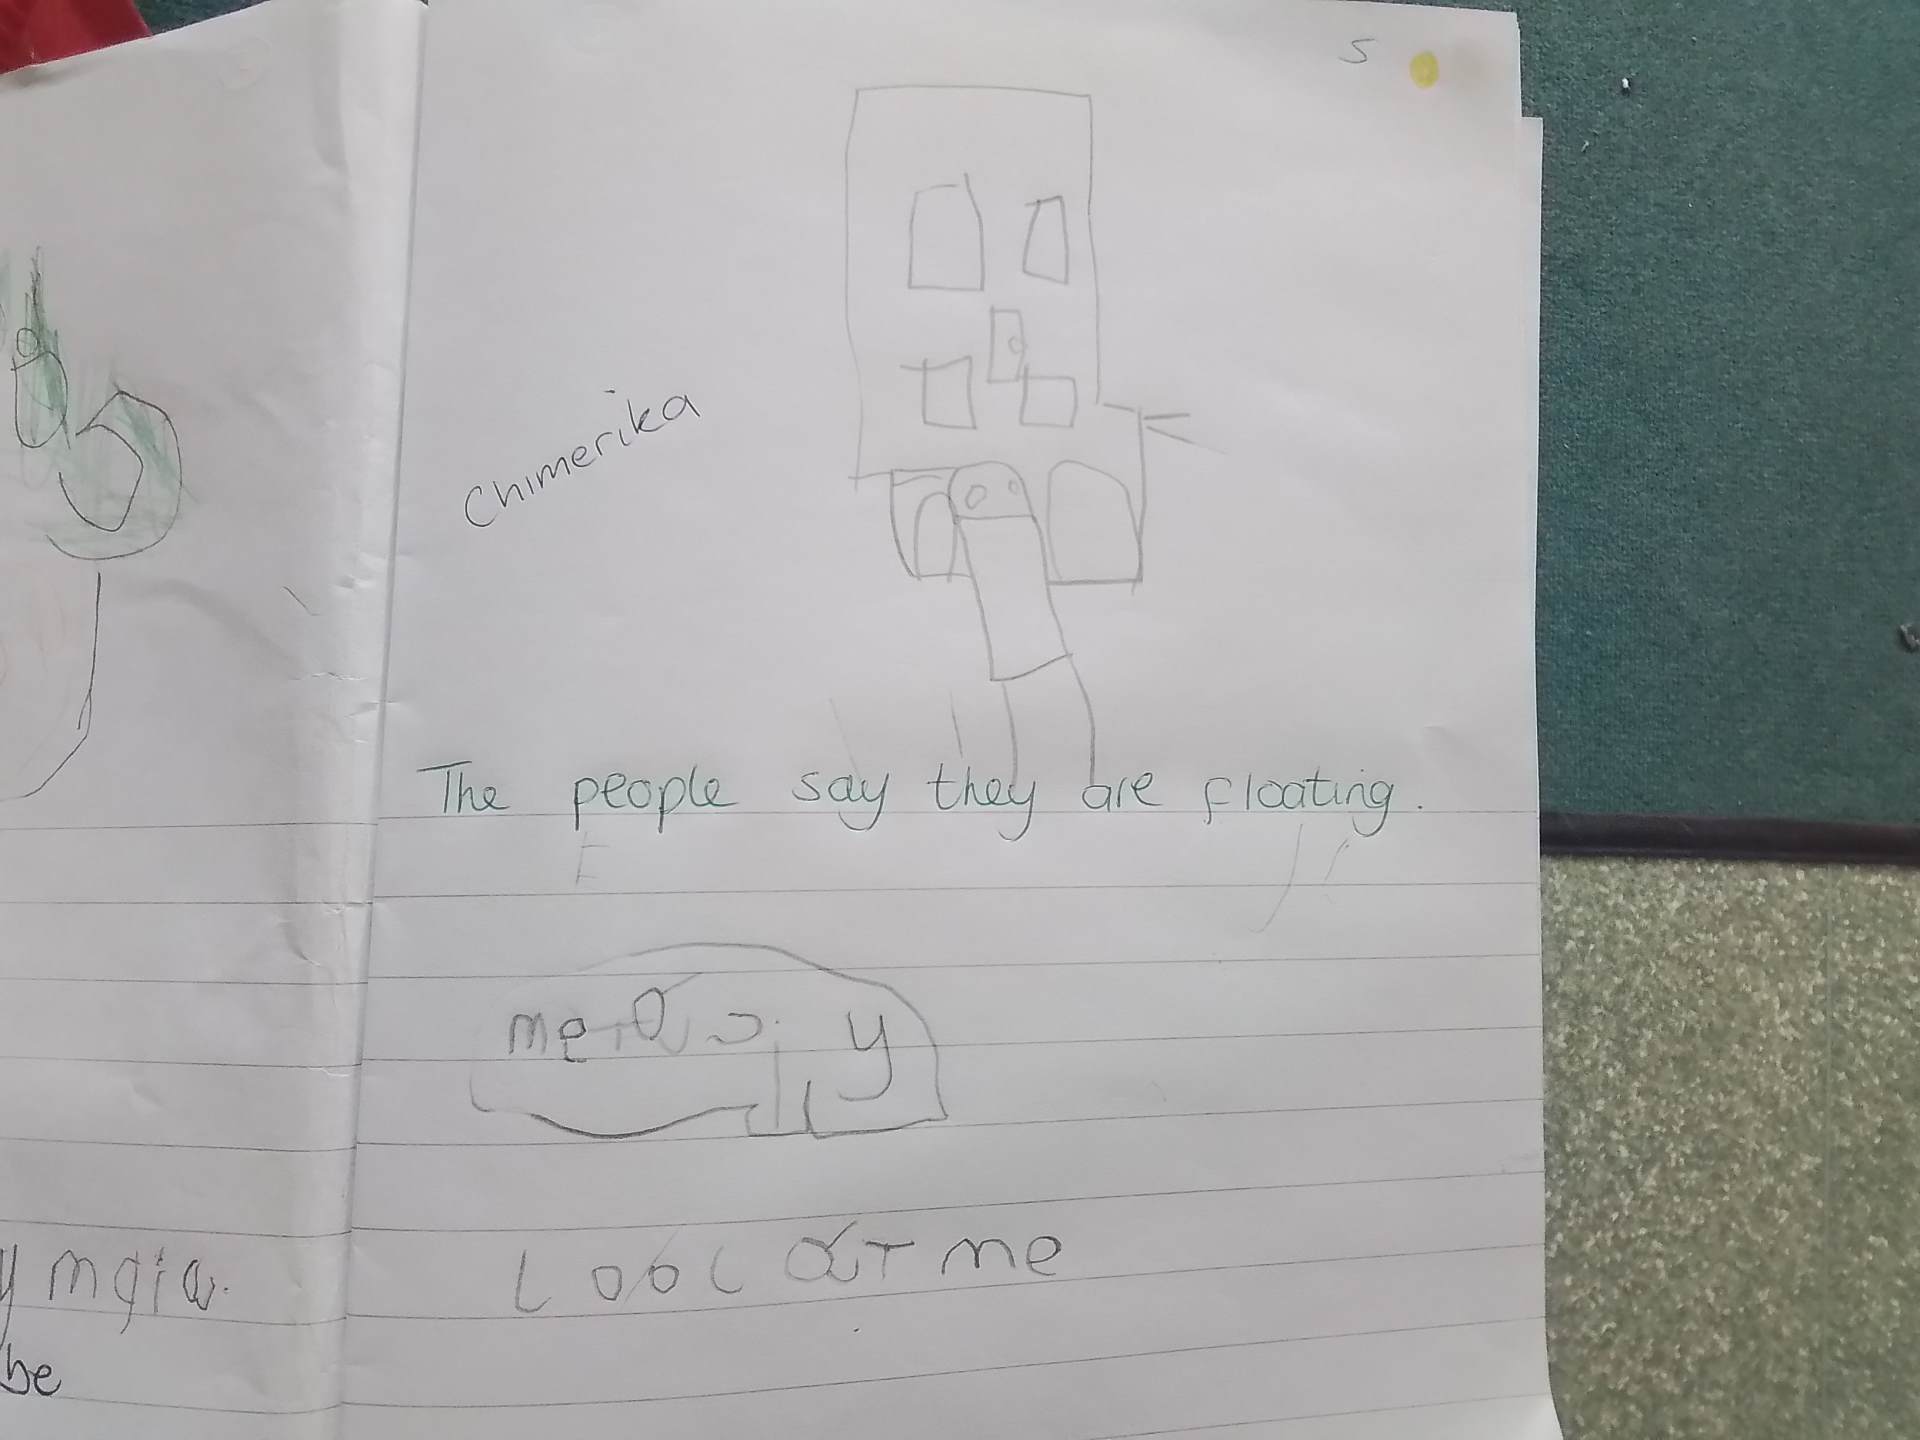 5
Chimerika
The people say they are floating.
E
me y
LOOC OUT me
y mgia.
be